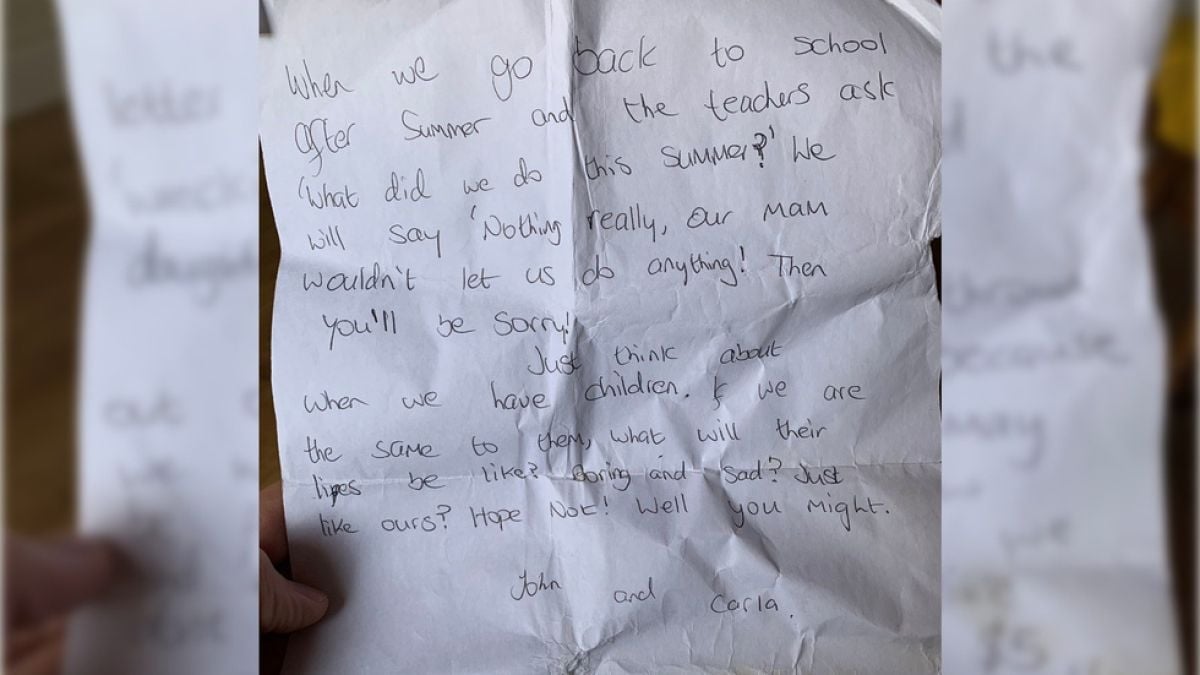 When we go back to school
after Summer and the teachers ask
'What did we do this summer?' We
will say 'Nothing really, our mam
wouldn't let us do anything! Then
you'll be sorry!
Just think about
when we have children. If we are
the same to them, what will their
lives be like? Boring and sad? Just
like ours? Hope Not! Well you might.
John and Carla.
letter
the